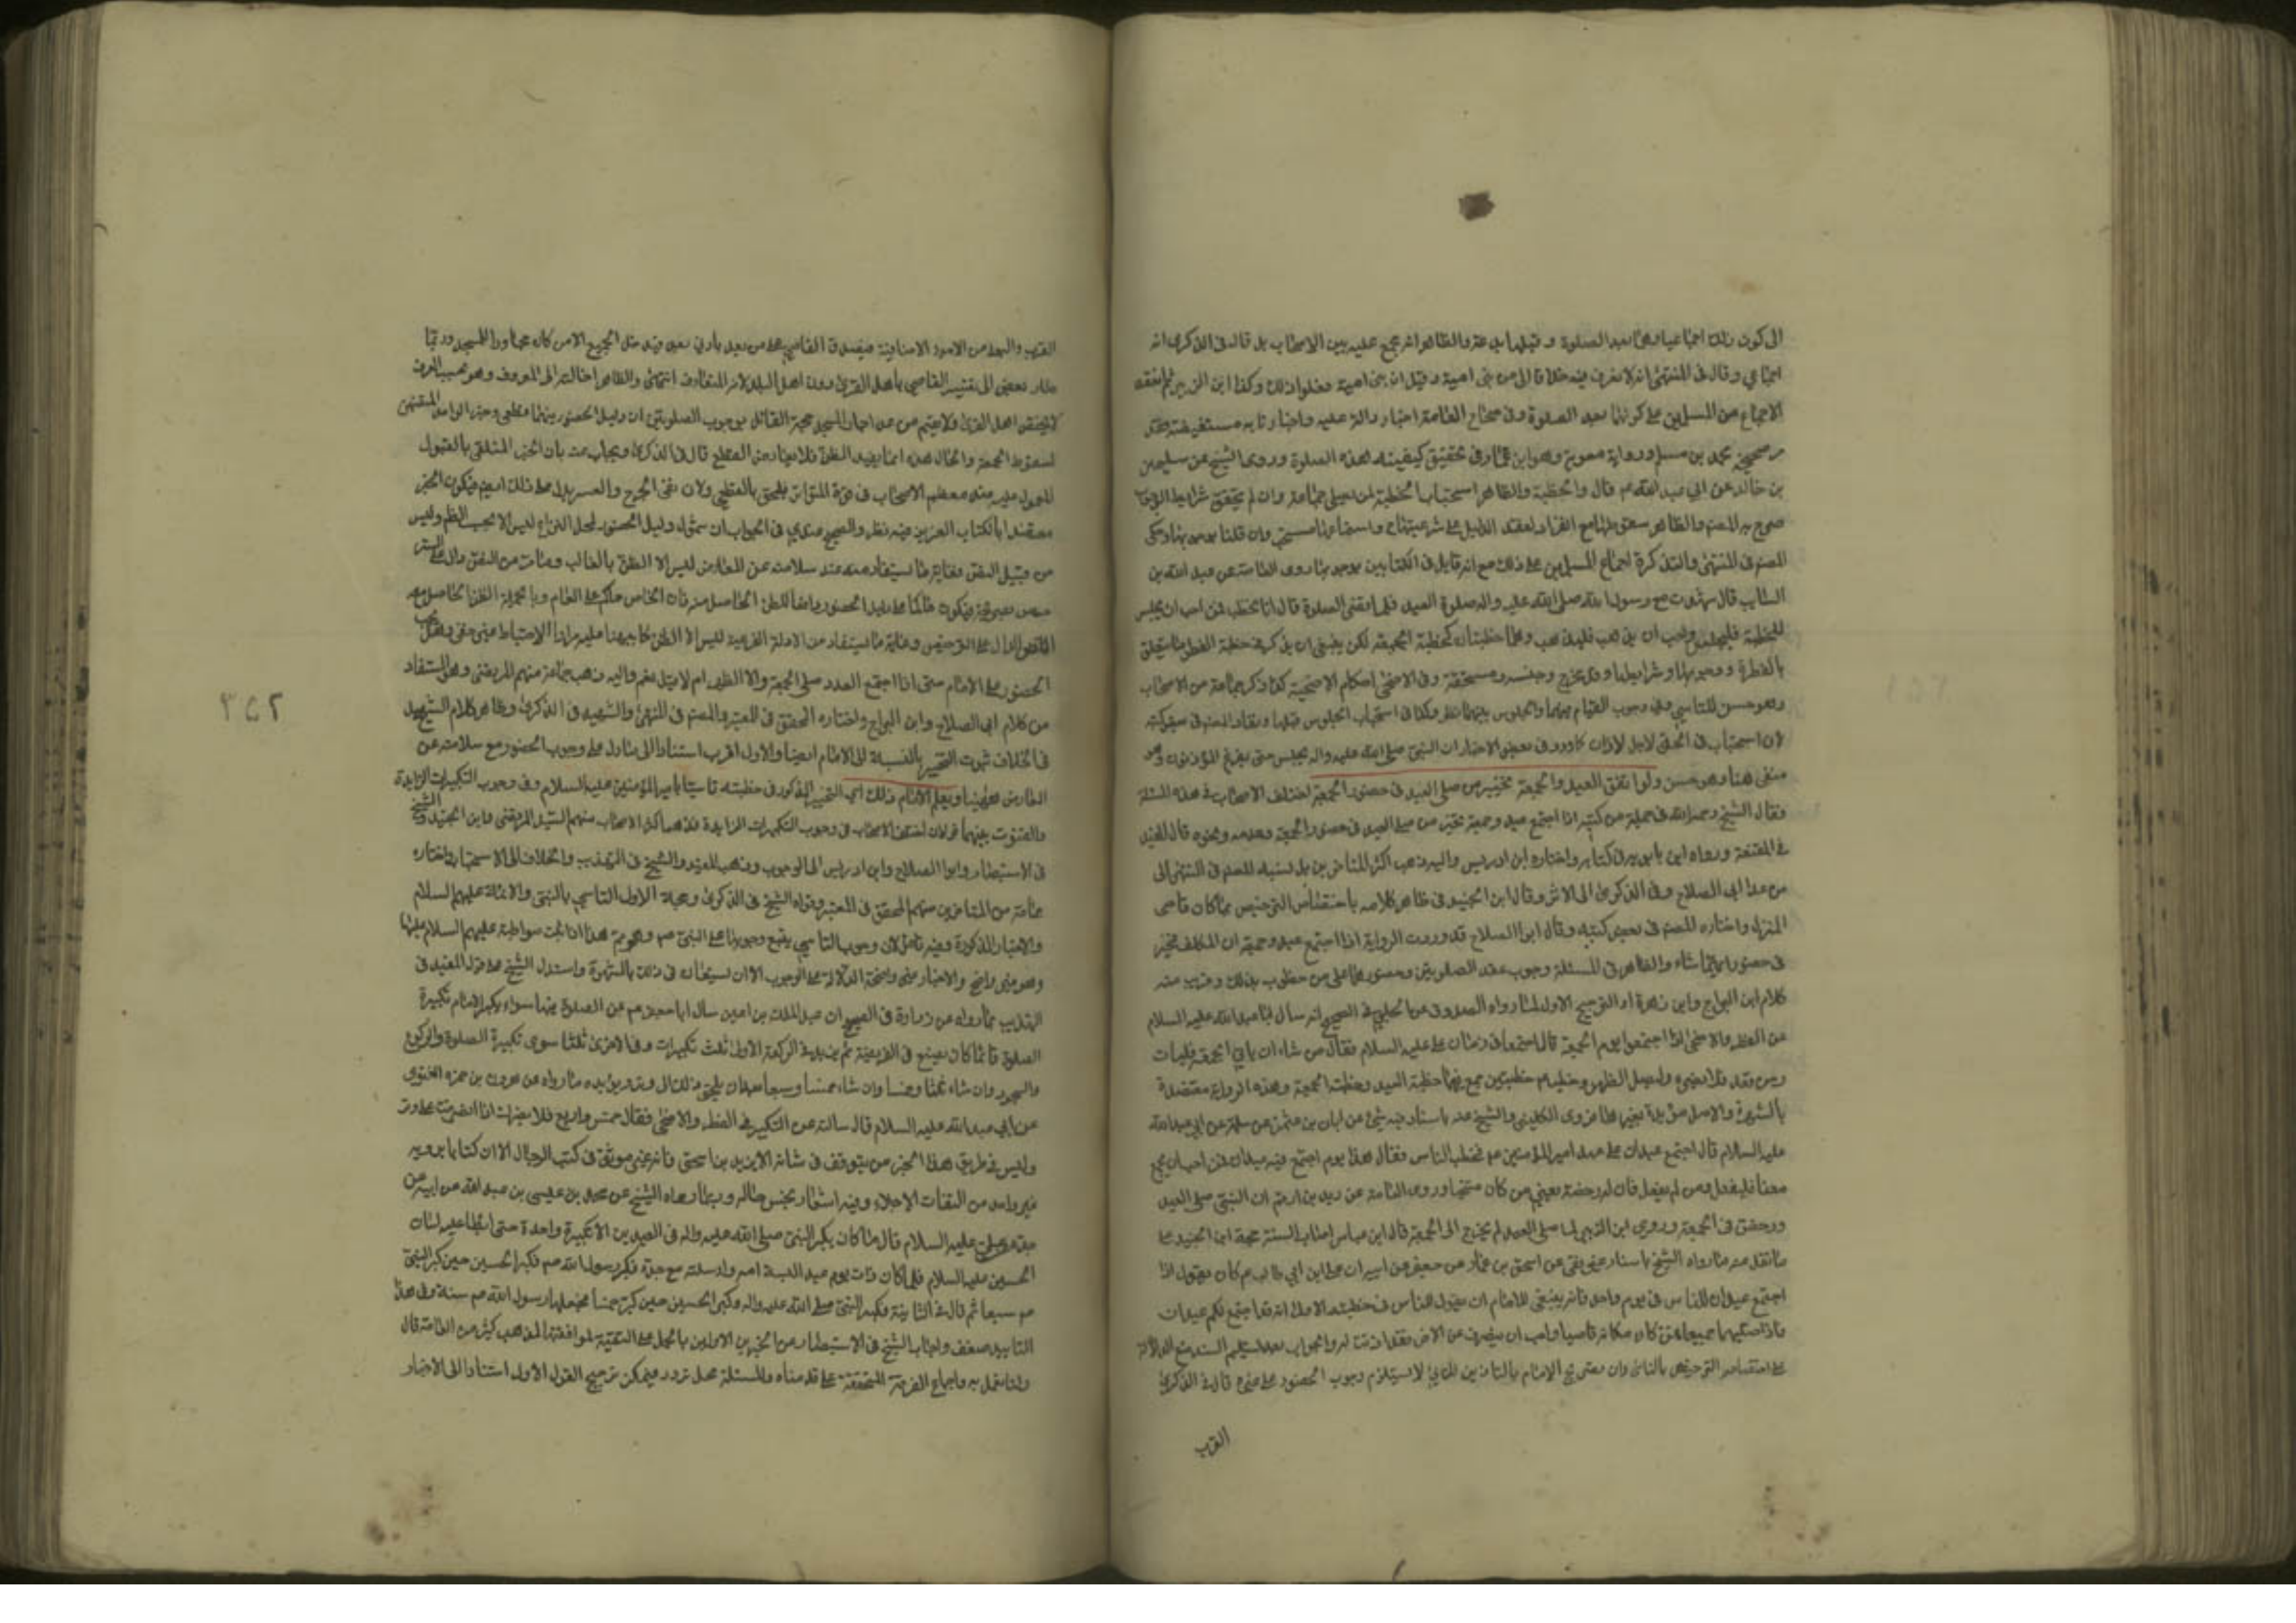 الى كون ذلك اجماعيا وهما بعد الصلوة وقبلها بدعة والظاهر انه مجمع عليه بين الاصحاب بل قال في الذكرى انه
اجماعي وقال في المنتهى انه لا نعرف فيه خلافا الا من بني امية وقيل ان بني امية فعلوا ذلك وكذا ابن الزبير ثم انعقد
الاجماع من المسلمين على كونهما بعد الصلوة وفي صحاح العامة اخبار دالة عليه واخبارنا به مستفيضة
صحيحة محمد بن مسلم ورواية معوية وهو ابن عمار في تحقيق كيفية هذه الصلوة وروى الشيخ عن سليمن
بن خالد عن ابي عبد الله ع قال والخطبة والظاهر استحباب الخطبة لمن يصلي جماعة وان لم يتحقق شرايط الوجوب
صرح به المصنف والظاهر سقوطها مع انفراد لفقد الدليل على شرعيتها واستماعها مستحب وان قلنا بوجوبها وحكى
المصنف في المنتهى والتذكرة اجماع المسلمين على ذلك مع انه قايل في الكتابين بوجوبها روى العامة عن عبد الله بن
السائب قال شهدت مع رسول الله صلى الله عليه واله صلوة العيد فلما قضى الصلوة قال انا نخطب فمن احب ان يجلس
للخطبة فليجلس ومن احب ان يذهب فليذهب وهما خطبتان كخطبة الجمعة لكن ينبغي ان يذكر في خطبة الفطر ما يتعلق
بالفطرة ووجوبها وشرايطها وقدر المخرج وجنسه ومستحقه وفي الاضحى احكام الاضحية كذا ذكر جماعة من الاصحاب
وهو حسن للتاسي وفي وجوب القيام فيهما والجلوس بينهما نظر وكذا في استحباب الجلوس قبلها ونفاه المصنف في بعض كتبه
لان استحبابه في الجمعة لاجل الاذان كما ورد في بعض الاخبار ان النبي صلى الله عليه واله يجلس حتى يفرغ المؤذنون وهو
منفي هنا وهو حسن ولو اتفق العيد والجمعة تخير من صلى العيد في حضور الجمعة اختلف الاصحاب في هذه المسئلة
فقال الشيخ رحمه الله في جملة من كتبه اذا اجتمع عيد وجمعة تخير من صلى العيد في حضور الجمعة وعدمه ونحوه قال المفيد
في المقنعة ورواه ابن بابويه في كتابه واختاره ابن ادريس واليه ذهب اكثر المتاخرين بل نسبه المصنف في المنتهى الى
من عدا ابي الصلاح وفي الذكرى الى الاكثر وقال ابن الجنيد في ظاهر كلامه باختصاص الترخيص بما كان قاصي
المنزل واختاره المصنف في بعض كتبه وقال ابو الصلاح قد وردت الرواية اذا اجتمع عيد وجمعة ان المكلف مخير
في حضور ايهما شاء والظاهر في المسئلة وجوب عقد الصلوتين وحضورهما على من خوطب بذلك وقريب منه
كلام ابن البراج وابن زهرة والترجيح الاول لما رواه الصدوق عن الحلبي في الصحيح انه سال ابا عبد الله عليه السلام
عن الفطر والاضحى اذا اجتمعا يوم الجمعة قال اجتمعا في زمان علي عليه السلام فقال من شاء ان ياتي الجمعة فليات
ومن قعد فلا يضره وليصل الظهر وخطب ع خطبتين جمع فيهما خطبة العيد وخطبة الجمعة وهذه الرواية معتضدة
بالشهرة والاصل مؤيدة بغيرها فروى الكليني والشيخ عنه باسناد فيه شيء عن ابان بن عثمن عن سلمة عن ابي عبد الله
عليه السلام قال اجتمع عيدان على عهد امير المؤمنين ع فخطب الناس فقال هذا يوم اجتمع فيه عيدان فمن احب ان يجمع
معنا فليفعل ومن لم يفعل فان له رخصة يعني من كان متنحيا وروى العامة عن زيد بن ارقم ان النبي صلى العيد
ورخص في الجمعة وروى ابن الزبير لما صلى العيد لم يخرج الى الجمعة قال ابن عباس اصاب السنة حجة ابن الجنيد على
ما نقل عنه ما رواه الشيخ باسناد عن اسحق بن عمار عن جعفر عن ابيه ان علي ابن ابي طالب ع كان يقول اذا
اجتمع عيدان للناس في يوم واحد فانه ينبغي للامام ان يقول للناس في خطبته الاولى انه قد اجتمع لكم عيدان
فانا اصليهما جميعا فمن كان مكانه قاصيا واحب ان ينصرف عن الاخر فقد اذنت له والجواب بعد تسليم السند منع الدلالة
على اختصاص الترخيص بالنائي وان تصريح الامام بالتاذين للنائي لا يستلزم وجوب الحضور على غيره قال في الذكرى
القرب
القرب والبعد من الامور الاضافية فيصدق القاصي على من بعد بادنى بعد فيدخل الجميع الا من كان مجاورا للمسجد وربما
صار بعض الى تفسير القاصي باهل القرى دون اهل البلد لانه المتعارف انتهى والظاهر احالته الى العرف وهو بحسب العرف
لا يختص اهل القرى ولا يعم من عدا جار المسجد حجة القائل بوجوب الصلوتين ان دليل الحضور فيهما قطعي وخبر الواحد المقتضي
لسقوط الجمعة والحال هذه انما يفيد الظن فلا يعارض القطع قال في الذكرى ويجاب عنه بان الخبر المتلقى بالقبول
المعمول عليه عند معظم الاصحاب في قوة المتواتر فيلحق بالقطعي ولان نفي الحرج والعسر يدل على ذلك ايضا فيكون الخبر
معتضدا بالكتاب العزيز وفيه نظر والصحيح عندي في الجواب ان شمول دليل الحضور لمحل النزاع ليس الا بحسب الظاهر وليس
من قبيل النص فغاية ما يستفاد منه عند سلامته عن المعارض ليس الا الظن
الحضور على الامام حتى اذا اجتمع العدد صلى الجمعة والا الظهر ام لا قيل نعم واليه ذهب جماعة منهم المرتضى وهو المستفاد
من كلام ابي الصلاح وابن البراج واختاره المحقق في المعتبر والمصنف في المنتهى والشهيد في الذكرى وظاهر كلام الشيخ
في الخلاف ثبوت التخيير بالنسبة الى الامام ايضا والاول اقرب استنادا الى ما دل على وجوب الحضور مع سلامته عن
المعارض ههنا ويعلم الامام ذلك اي التخيير المذكور في خطبته تاسيا بامير المؤمنين عليه السلام وفي وجوب التكبيرات الزايدة
والقنوت بينهما قولان اختلف الاصحاب في وجوب التكبيرات الزايدة فذهب اكثر الاصحاب منهم السيد المرتضى وابن الجنيد والشيخ
في الاستبصار وابو الصلاح وابن ادريس الى الوجوب وذهب المفيد والشيخ في التهذيب والخلاف الى الاستحباب واختاره
جماعة من المتاخرين منهم المحقق في المعتبر وقواه الشيخ في الذكرى وحجة الاول التاسي بالنبي والائمة عليهم السلام
والاخبار المذكورة وفيه تامل لان وجوب التاسي يتبع وجوبها على النبي صم وهو مم هذا اذا ثبت مواظبته عليهم السلام عليها
وهو غير واضح والاخبار غير واضحة الدلالة على الوجوب الا ان يستعان في ذلك بالشهرة واستدل الشيخ على قول المفيد في
التهذيب بما رواه عن زرارة في الصحيح ان عبد الملك بن اعين سال ابا جعفر ع عن الصلوة فيهما سواء يكبر الامام تكبيرة
الصلوة قائما كما يصنع في الفريضة ثم يزيد في الركعة الاولى ثلث تكبيرات وفي الاخرى ثلثا سوى تكبيرة الصلوة والركوع
والسجود وان شاء ثلثا وخمسا وان شاء خمسا وسبعا بعد ان يلحق ذلك الى وتر ويؤيده ما رواه عن هرون بن حمزة الغنوي
عن ابي عبد الله عليه السلام قال سالته عن التكبير في الفطر والاضحى فقال خمس واربع فلا يضرك اذا انصرفت على وتر
وليس في طريق هذا الخبر من يتوقف في شانه الا يزيد بن اسحق فانه غير موثق في كتب الرجال الا ان كتابا يرويه
غير واحد من الثقات الاجلاء وفيه اشعار بحسن حاله وبما رواه الشيخ عن محمد بن عيسى بن عبد الله عن ابيه عن
جده عن علي عليه السلام قال ما كان يكبر النبي صلى الله عليه واله في العيدين الا تكبيرة واحدة حتى ابطأ عليه لسان
الحسين عليه السلام فلما كان ذات يوم عيد البسته امه وارسلته مع جده فكبر رسول الله صم فكبر الحسين حين كبر النبي
صم سبعا ثم قال في الثانية فكبر النبي صلى الله عليه واله وكبر الحسين حين كبر خمسا فجعلها رسول الله صم سنة وفي هذا
التاييد ضعف واجاب الشيخ في الاستبصار عن الخبرين الاولين بالحمل على التقية لموافقتهما لمذهب كثير من العامة قال
ولسنا نعمل به واجماع الفرقة المحقة على ما قدمناه والمسئلة محل تردد فيمكن ترجيح القول الاول استنادا الى الاخبار
٣٥٢